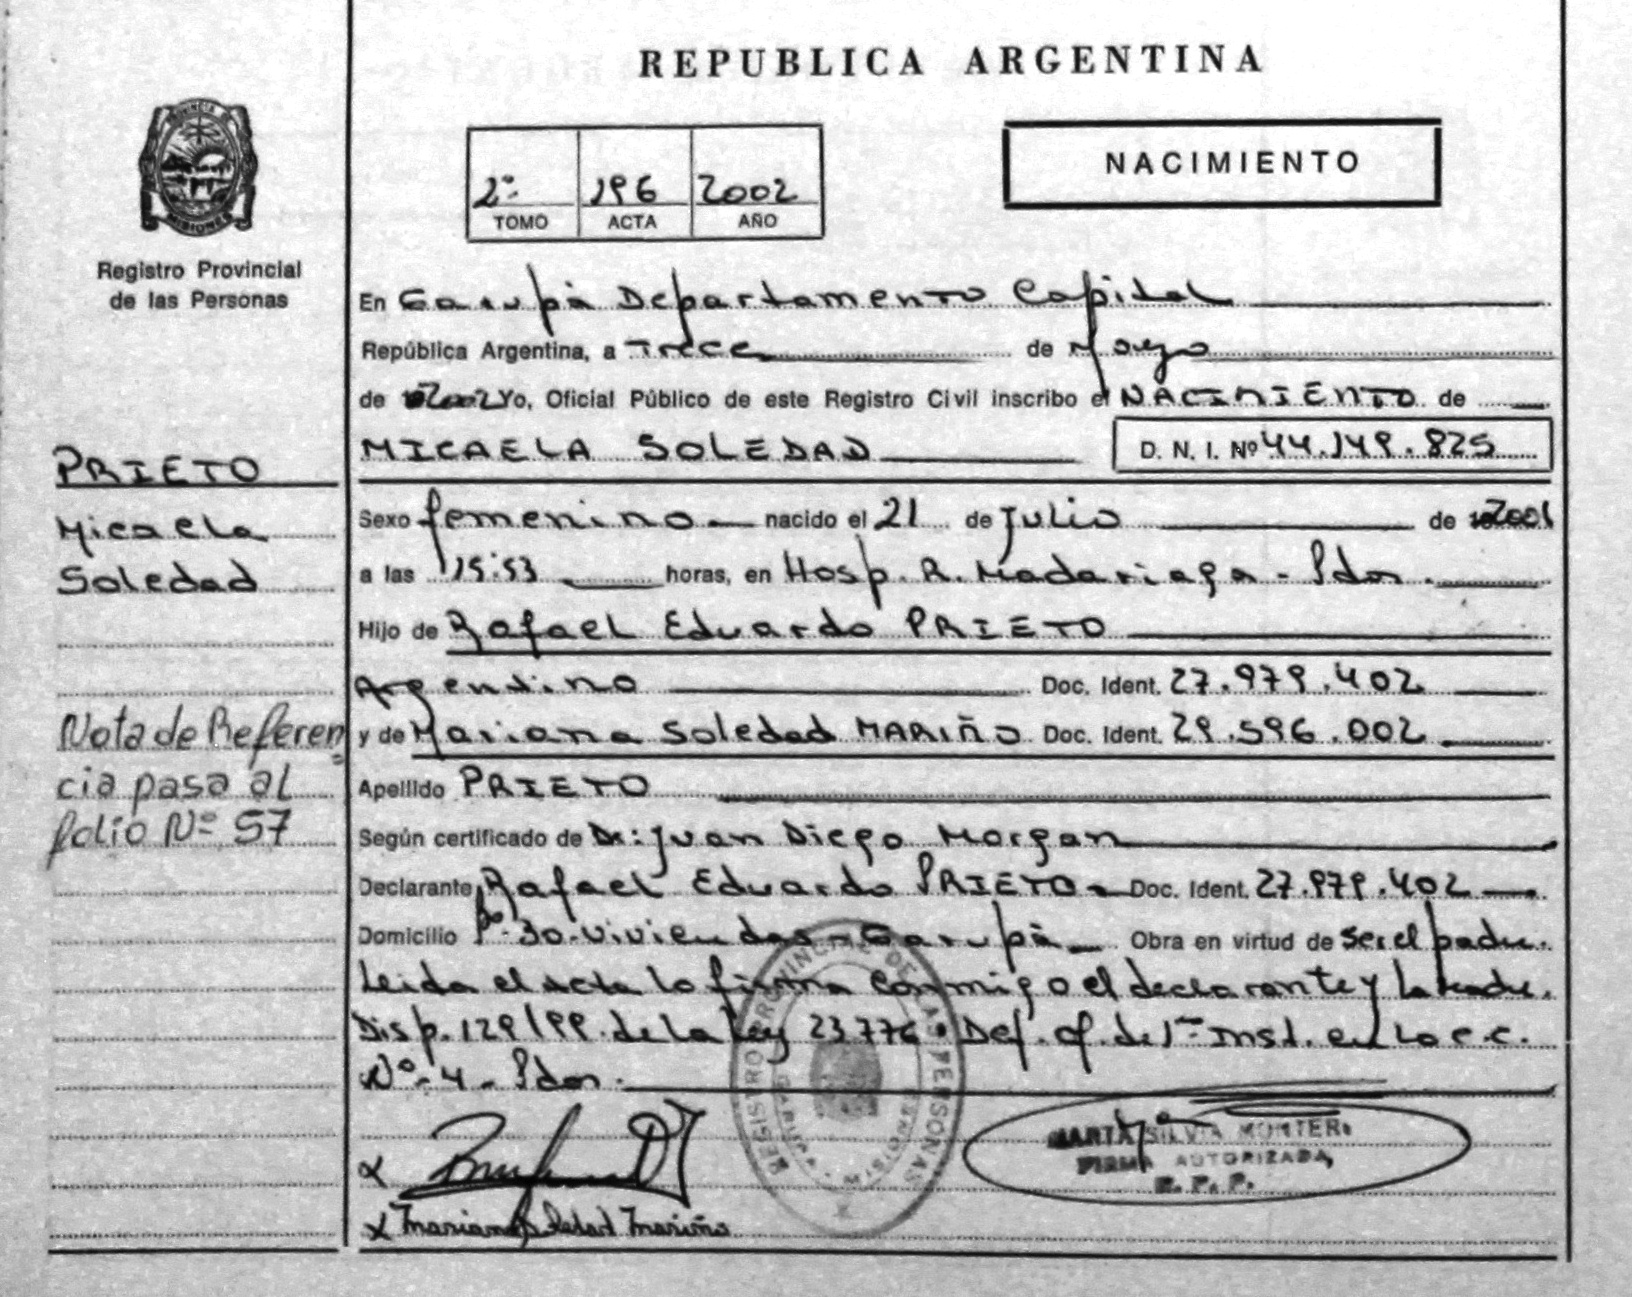 REPUBLICA ARGENTINA
PROVINCIA DE
MISIONES
Registro Provincial
de las Personas
2º 196 2002
TOMO ACTA AÑO
NACIMIENTO
En Garupá Departamento Capital
República Argentina, a Trece de Mayo
de 2002 Yo, Oficial Público de este Registro Civil inscribo el NACIMIENTO de
MICAELA SOLEDAD D. N. I. Nº 44.149.825
PRIETO
Micaela
Soledad
Sexo femenino nacido el 21 de Julio de 2001
a las 15:53 horas, en Hosp. R. Madariaga - Pdas.
Hijo de Rafael Eduardo PRIETO
Argentino Doc. Ident. 27.979.402
y de Mariana Soledad MARIÑO Doc. Ident. 29.596.002
Apellido PRIETO
Nota de Referen
cia pasa al
folio Nº 57
Según certificado de Dr: Juan Diego Morgan
Declarante, Rafael Eduardo PRIETO - Doc. Ident. 27.979.402
Domicilio Bº 30 viviendas - Garupá Obra en virtud de ser el padre.
Leida el acta la firma conmigo el declarante y la madre.
Disp. 129/99 de la Ley 23776 Def. of. de 1º Inst. en lo C.C.
Nº 4 - Pdas.
REGISTRO PROVINCIAL DE LAS PERSONAS
GARUPA
MISIONES
MARTA SILVIA
FIRMA AUTORIZADA
R. P. P.
x
x Mariana Soledad Mariño